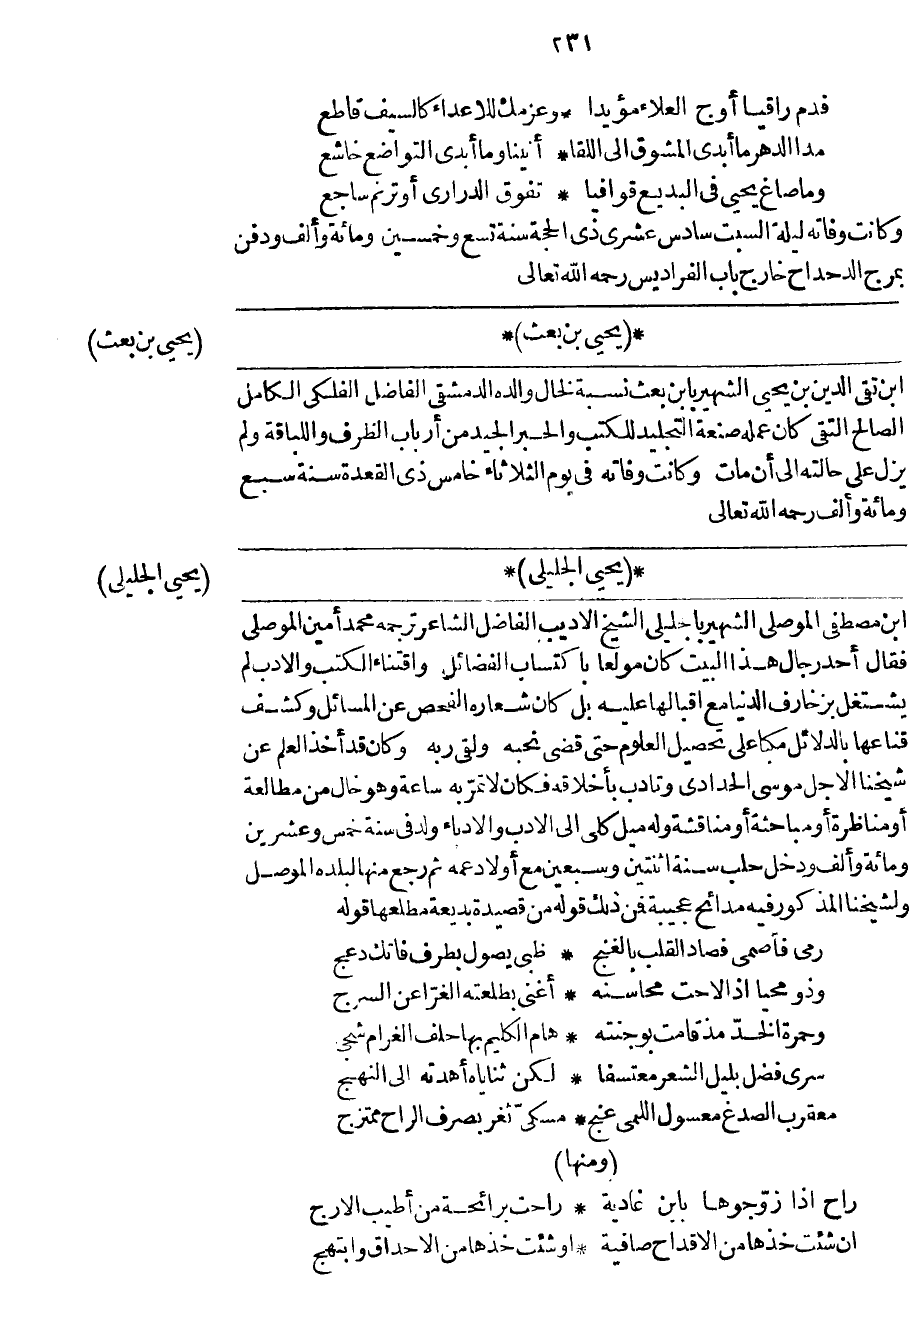 ٢٣١
قدم راقيا أوج العلاء مؤيدا * وعزمك للاعداء كالسيف قاطع
مدا الدهر ما أبدى المشوق الى اللقا * أنينا وما أبدى التواضع خاشع
وما صاغ يحيى فى البديع قوافيا * تفوق الدرارى أو ترنم ساجع
وكانت وفاته ليلة السبت سادس عشرى ذى الحجة سنة تسع وخمسين ومائة وألف ودفن
بمرج الدحداح خارج باب الفراديس رحمه الله تعالى
*(يحيى بن بعث)*
(يحيى بن بعث)
ابن تقى الدين بن يحيى الشهير بابن بعث نسبة لخال والده الدمشقى الفاضل الفلكى الكامل
الصالح التقى كان عمله صنعة التجليد للكتب والحبر الجيد من أرباب الظرف واللباقة ولم
يزل على حالته الى أن مات وكانت وفاته فى يوم الثلاثاء خامس ذى القعدة سنة سبع
ومائة وألف رحمه الله تعالى
*(يحيى الجليلى)*
(يحيى الجليلى)
ابن مصطفى الموصلى الشهير باجليلى الشيخ الاديب الفاضل الشاعر ترجمه محمد أمين الموصلى
فقال أحد رجال هذا البيت كان مولعا باكتساب الفضائل واقتناء الكتب والادب لم
يشتغل بزخارف الدنيا مع اقبالها عليه بل كان شعاره الفحص عن المسائل وكشف
قناعها بالدلائل مكبا على تحصيل العلوم حتى قضى نحبه ولقى ربه وكان قد أخذ العلم عن
شيخنا الاجل موسى الحدادى وتادب بأخلاقه فكان لا تمرّ به ساعة وهو خال من مطالعة
أو مناظرة أو مباحثة أو مناقشة وله ميل كلى الى الادب والادباء ولد فى سنة خمس وعشرين
ومائة وألف ودخل حلب سنة اثنتين وسبعين مع أولاد عمه ثم رجع منها لبلده الموصل
ولشيخنا المذكور فيه مدائح عجيبة فمن ذلك قوله من قصيدة بديعة مطلعها قوله
رمى فأصمى فصاد القلب بالغنج * ظبى يصول بطرف فاتك دعج
وذو محيا اذا لاحت محاسنه * أغنى بطلعته الغرّا عن السرج
وحمرة الخدّ مذ قامت بوجنته * هام الكليم بها حلف الغرام شجى
سرى فضل بليل الشعر معتسفا * لكن ثناياه أهدته الى النهج
معقرب الصدغ معسول اللمى غنج * مسكىّ ثغر بصرف الراح ممتزج
(ومنها)
راح اذا زوّجوها بابن غادية * راحت برائحة من أطيب الارج
ان شئت خذها من الاقداح صافية * او شئت خذها من الاحداق وابتهج